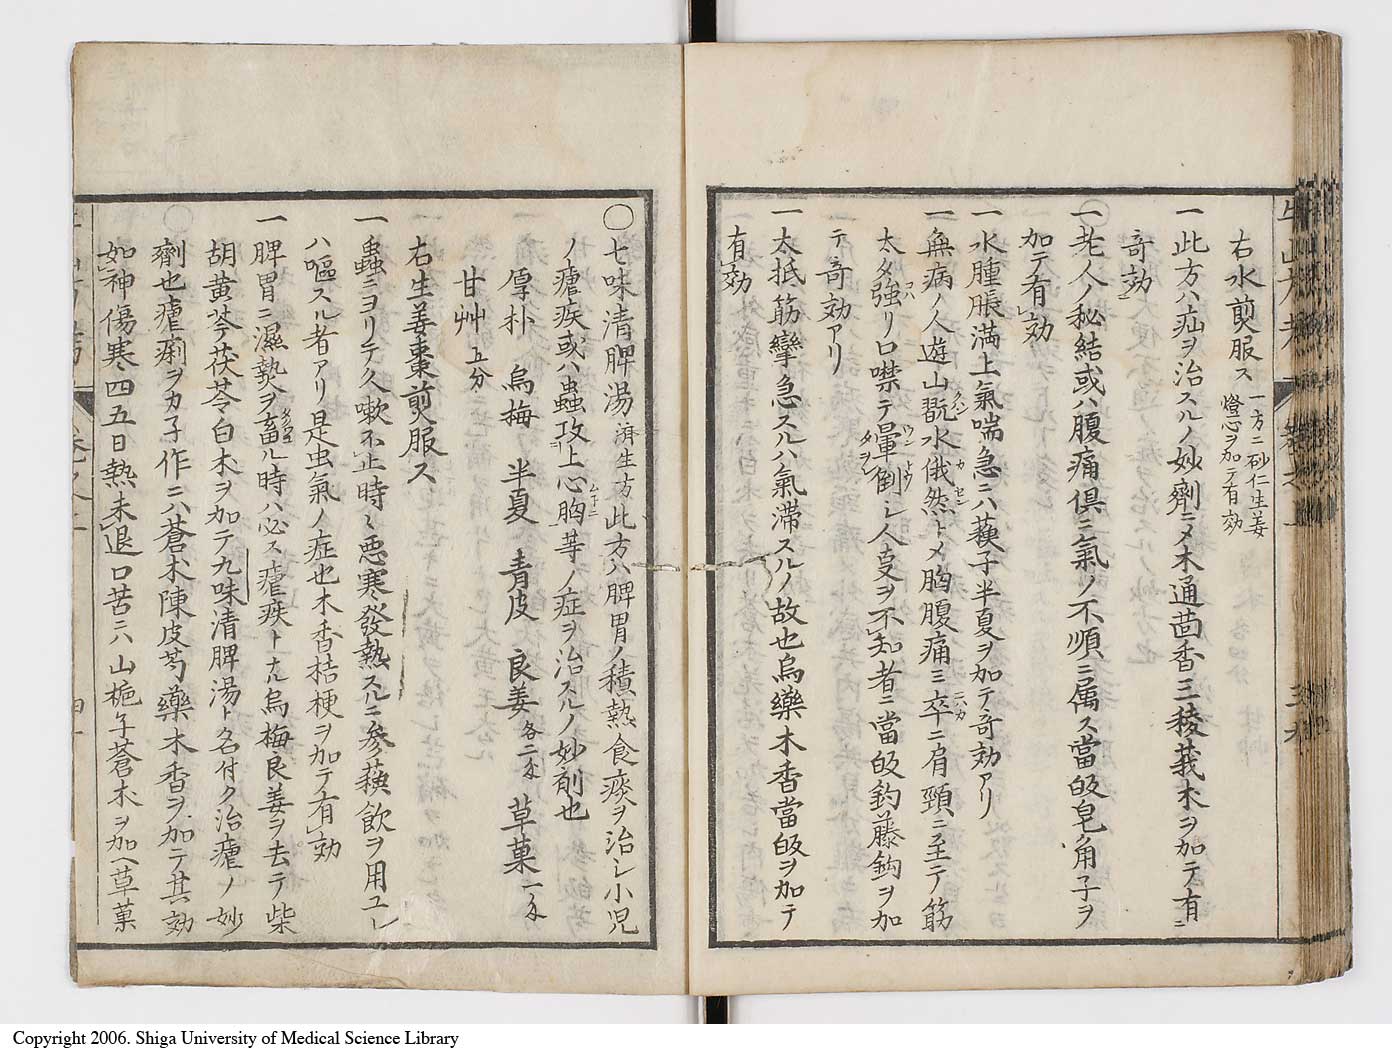 右水煎服ス 一方ニ砂仁生姜
燈心ヲ加テ有効
一此方ハ疝ヲ治スルノ妙劑ニメ木通茴香三稜莪朮ヲ加テ有ニ
奇効
一老人ノ秘結或ハ腹痛倶ニ氣ノ不順ニ属ス當皈皂角子ヲ
加テ有効
一水腫脹満上氣喘急ニハ蘓子半夏ヲ加テ奇効アリ
一無病ノ人遊山翫水俄然トメ胸腹痛ミ卒ニ肩頸ニ至テ筋
太タ強リ口噤テ暈倒シ人叓ヲ不知者ニ當皈釣藤鈎ヲ加
テ奇効アリ
一太抵筋攣急スルハ氣滞スルノ故也烏藥木香當皈ヲ加テ
有効
牛山方考 卷之上 三九
〇七味清脾湯 済生方 此方ハ脾胃ノ積熱食痰ヲ治シ小児
ノ瘧疾或ハ蟲攻上心胸等ノ症ヲ治スルノ妙剤也
厚朴 烏梅 半夏 青皮 良姜 各二匁 草菓 一匁
甘艸 五分
右生姜棗煎服ス
一蟲ニヨリテ久嗽不止時々悪寒發熱スルニ参蘓飲ヲ用ユレ
ハ嘔スル者アリ是虫氣ノ症也木香桔梗ヲ加テ有効
一脾胃ニ濕熱ヲ畜ル時ハ必ス瘧疾トナル烏梅良姜ヲ去テ柴
胡黄芩茯苓白朮ヲ加テ九味清脾湯ト名付ク治瘧ノ妙
劑也瘧痢ヲカ子作ニハ蒼朮陳皮芍藥木香ヲ加テ其効
如神傷寒四五日熱未退口苦ニハ山梔子蒼朮ヲ加ヘ草菓
Copyright 2006. Shiga University of Medical Science Library